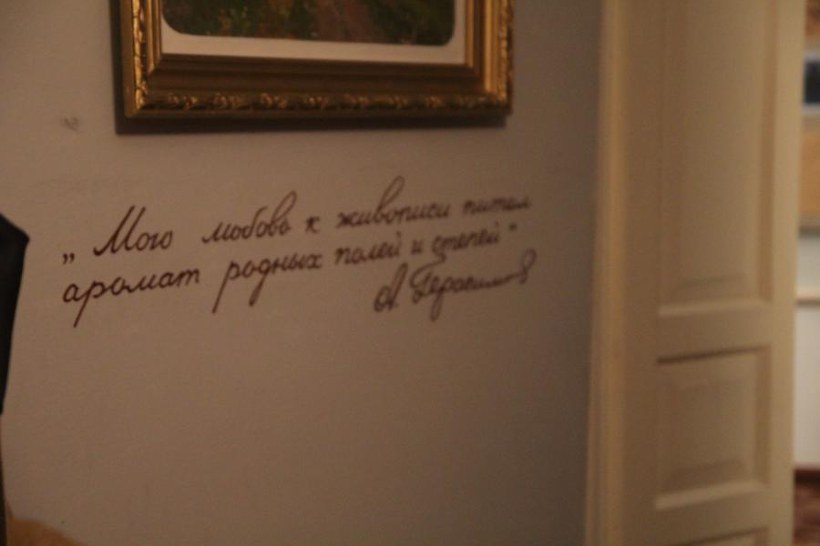 „Мою любовь к живописи питал
аромат родных полей и степей"
А. Герасимов